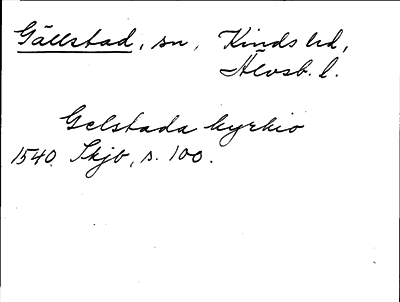 Gällstad, sn, Kinds hd,
Älvsb. l.
Gelstada kyrkio
1540. Skjb, s. 100.